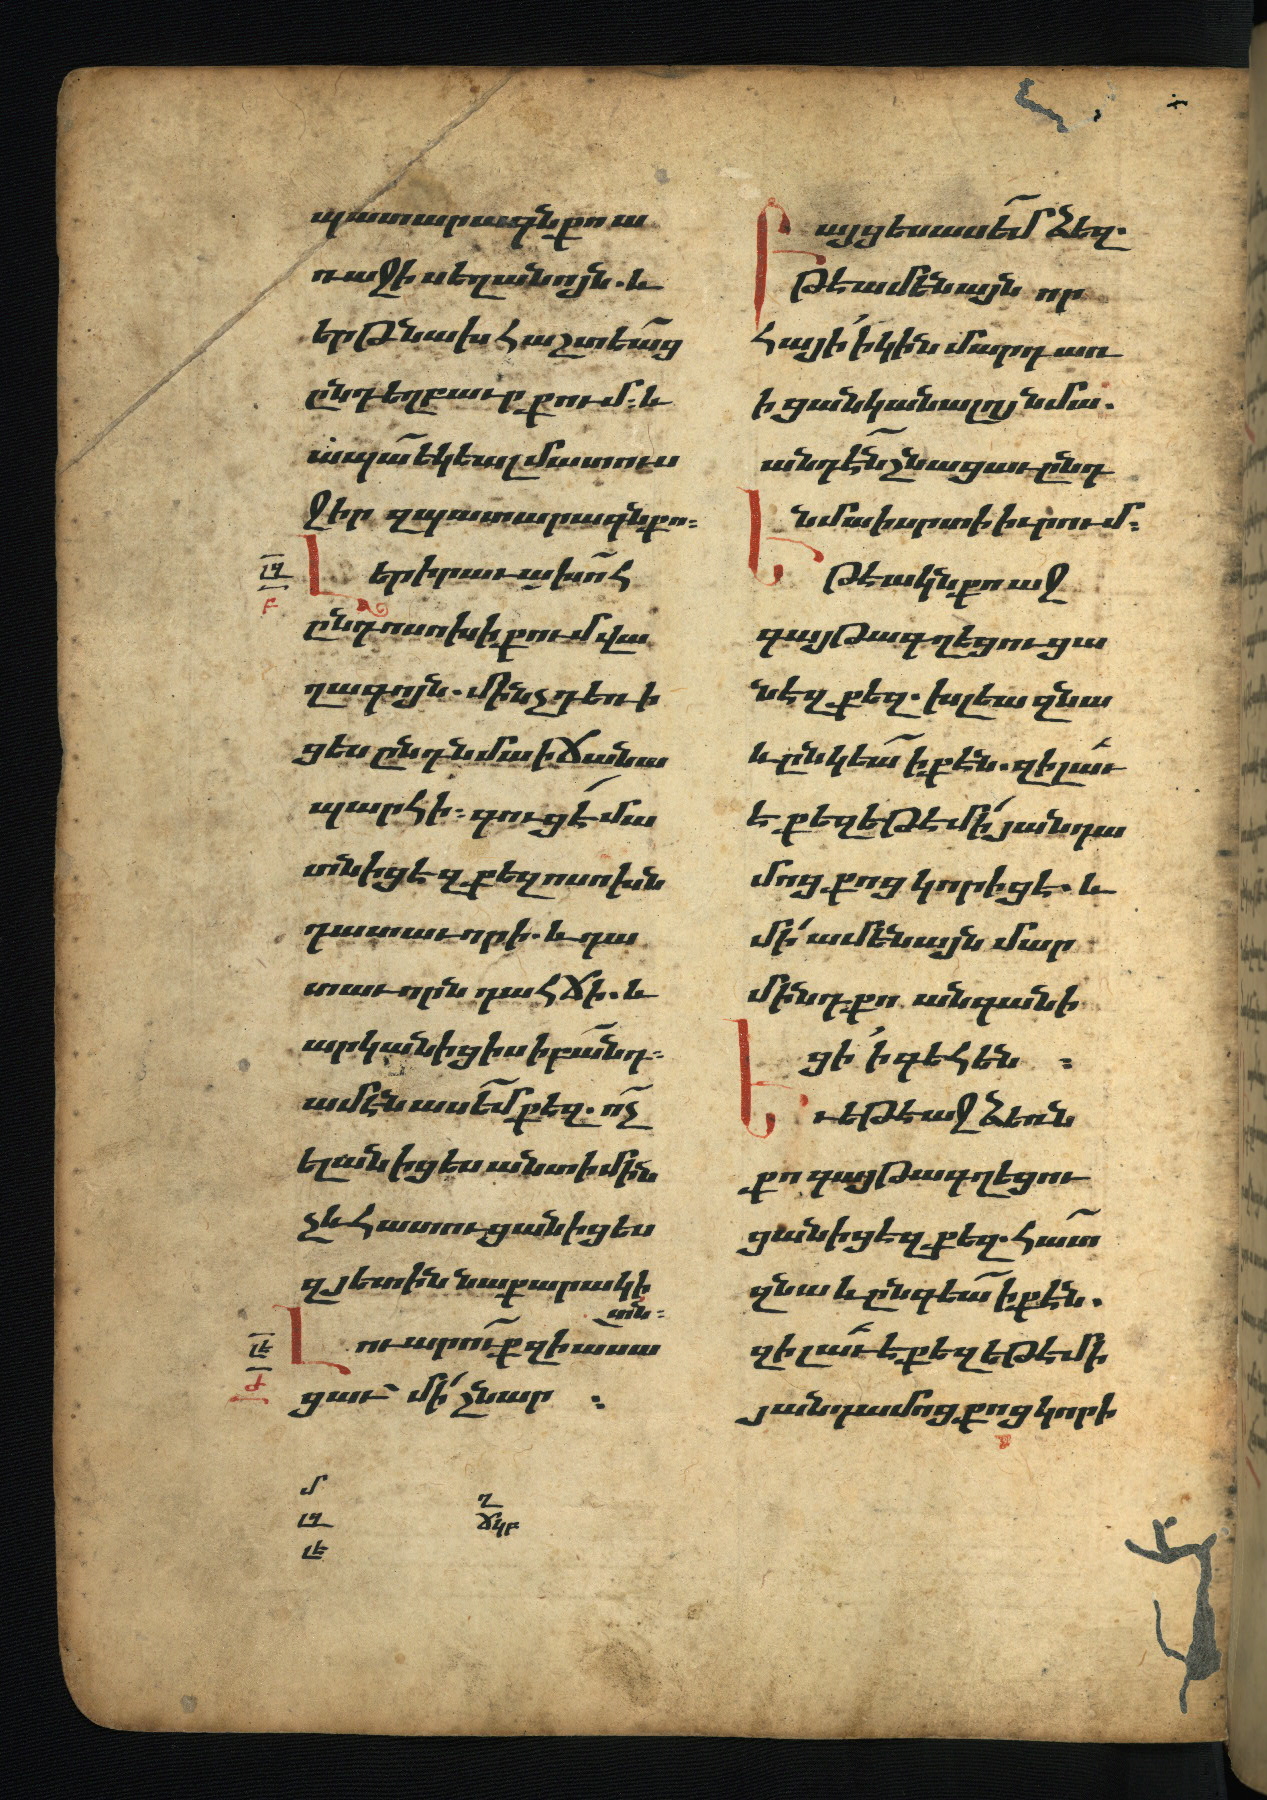 պատարագն քո ա
ռաջի սեղանոյն. և
երթ նախ հաշտեա՛ց
ընդ եղբաւր քում։ և
ապա՛ եկեալ մատուս
ջիր զպատարագն քո։
Լ
երիրաւախո՛հ
ընդ ոսոխի քում վա
ղագոյն. մինչդեռ ի
ցես ընդ նմա ի ճանա
պարհի։ գուցէ՛ մա
տնիցէ զքեզ ոսոխն
դատաւորի. և դա
տաւորն դահճի. և
արկանիցիս ի բանդ։
ամէն ասեմ քեզ. ո՛չ
ելանիցես անտի մին
չև հատուցանիցես
զյետին նաքարակի
տն։
Լ
ուարո՛ւք զի ասա
ցաւ մի՛ շնար ։
լզ
բ
լէ
ժ
մ
լզ
լէ
ղ
ճկբ
Բ
այց ես ասե՛մ ձեզ.
թէ ամենայն որ
հայի՛ ի կին մարդ առ
ի ցանկանալոյ նմա.
անդէ՛ն շնացաւ ընդ
նմա ի սրտի իւրում։
Ե
թէ ակն քո աջ
գայթագղեցուցա
նէ զքեզ. խլեա զնա
և ընկեա՛ ի քէն. զի լա՛ւ
է քեզ եթէ մի՛ յանդա
մոց քոց կորիցէ. և
մի՛ ամենայն մար
մինդ քո անգանի
ցի՛ ի գեհեն ։
Ե
ւեթէ աջ ձեռն
քո գայթագղեցու
ցանիցէ զքեզ. հատ
զնա և ընգեա՛ ի քէն.
զի լա՛ւ է քեզ եթէ մի
յանդամոց քոց կորի